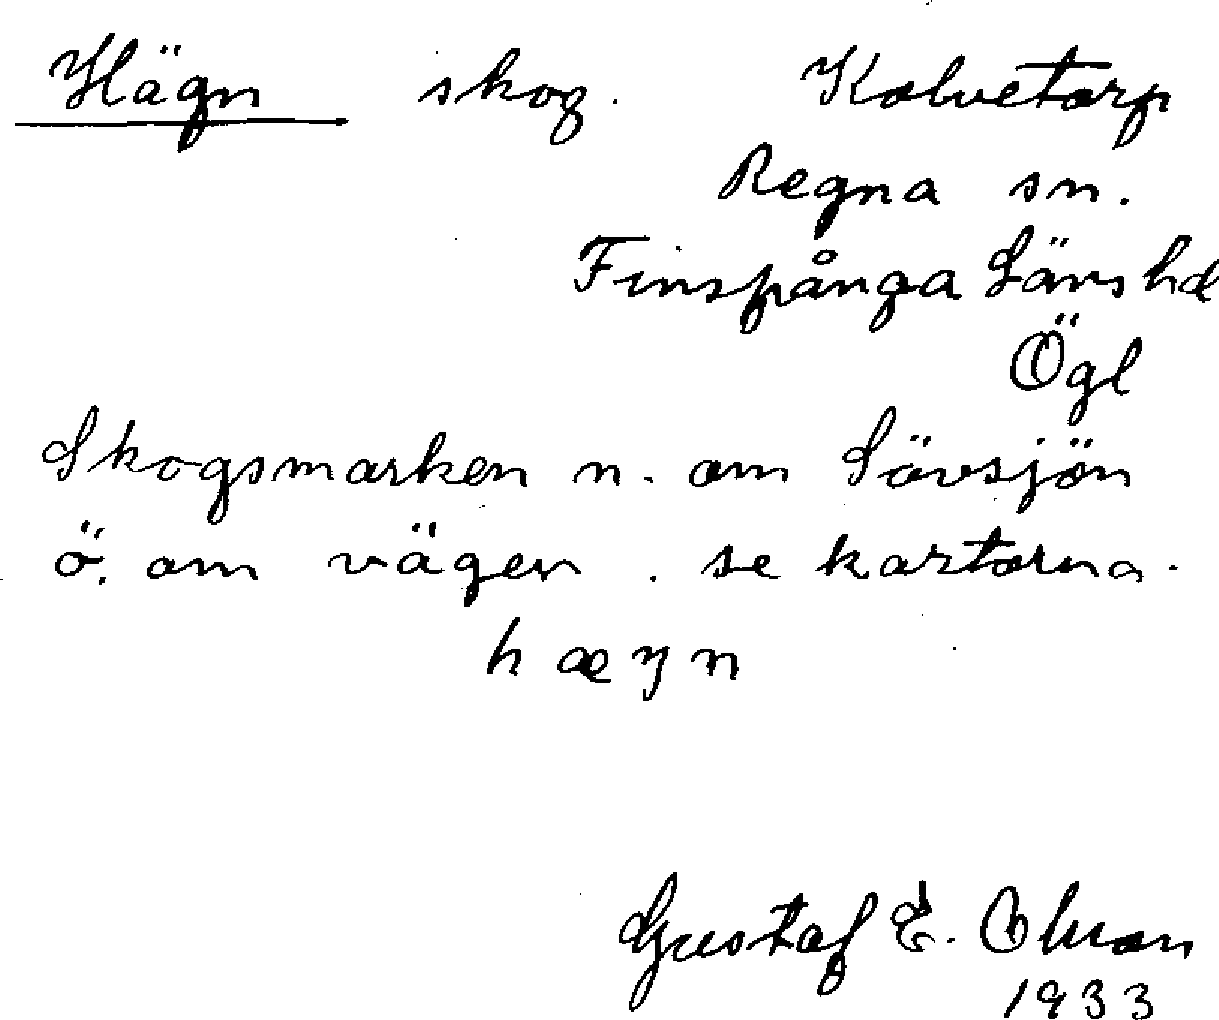 Hägn skog. Kalvetorp
Regna sn.
Finspånga Läns hd
Ögl
Skogsmarken n. om Sävsjön
ö. om vägen. se kartorna.
hæŋn
Gustaf E. Olsson
1933